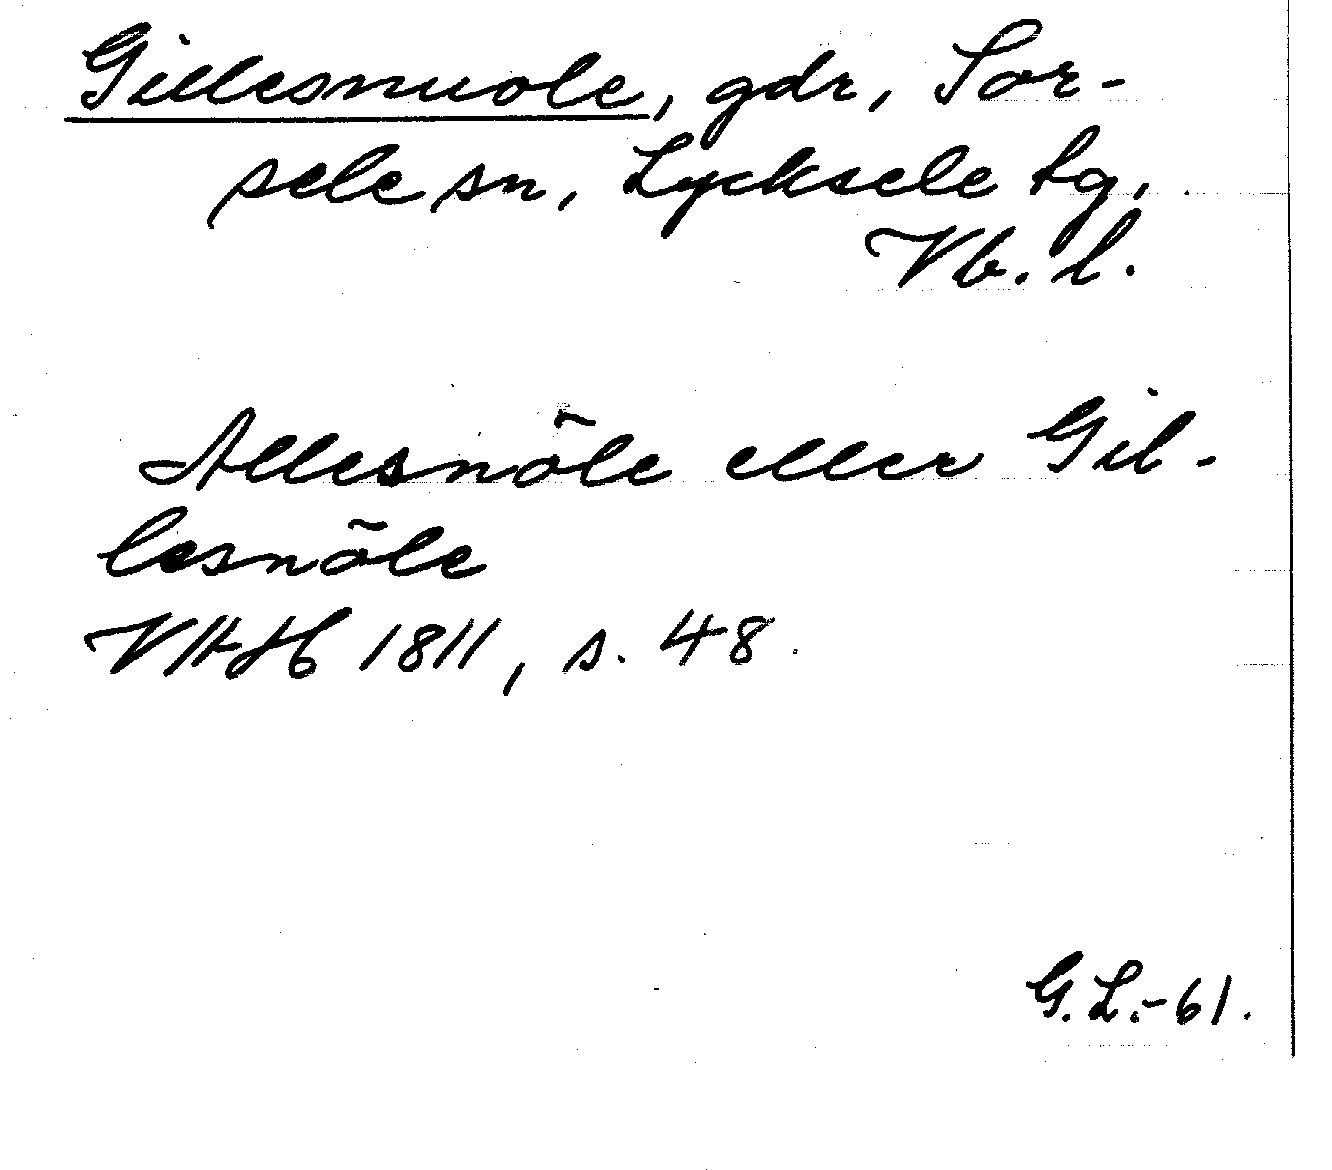 Gillesnuole, gdr, Sor-
sele sn, Lycksele tg,
Vb. l.
Allesnöle eller Gil-
lesnöle
VHAH 1811, s. 48.
G.L.-61.